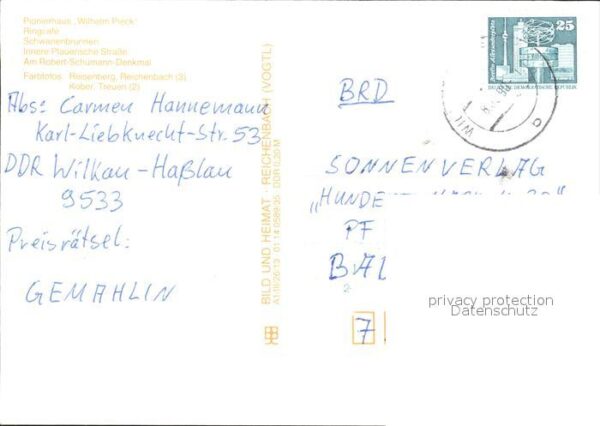 Pionierhaus „Wilhelm Pieck"
Ringcafé
Schwanenbrunnen
Innere Plauensche Straße
Am Robert-Schumann-Denkmal
Farbfotos Reisenberg, Reichenbach (3)
Kober, Treuen (2)
Abs: Carmen Hannemann
Karl-Liebknecht-Str. 53
DDR Wilkau-Haßlau
9533
Preisrätsel:
GEMAHLIN
BILD UND HEIMAT · REICHENBACH (VOGTL)
A1/III/26/13 01 14 0589/25 DDR 0,20 M
25
DEUTSCHE DEMOKRATISCHE REPUBLIK
BRD
SONNENVERLAG
„HUNDE
PF
BAL
7
privacy protection
Datenschutz